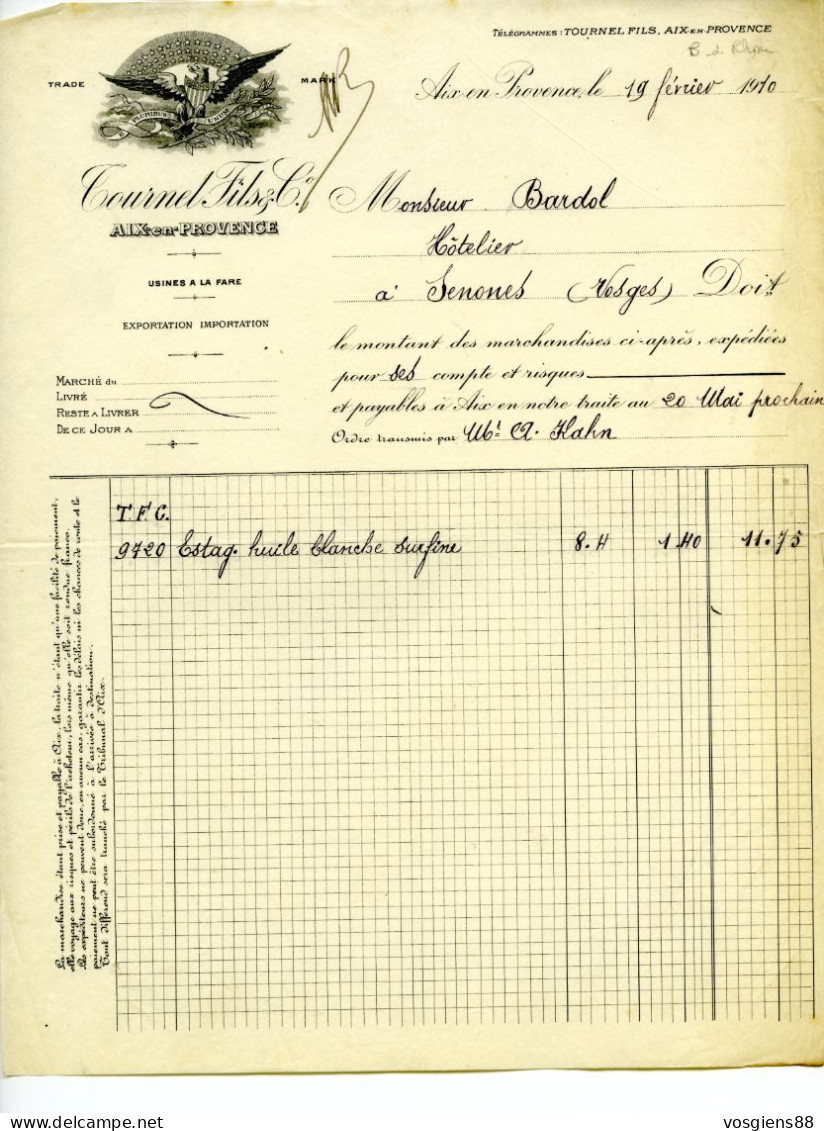 TÉLÉGRAMMES: TOURNEL FILS, AIX-EN-PROVENCE
B. d. Rhône
TRADE MARK
E PLURIBUS UNUM
Aix-en-Provence, le 19 février 1910
Tournel Fils & Cº
AIX-en-PROVENCE
USINES A LA FARE
EXPORTATION IMPORTATION
MARCHÉ du
LIVRÉ
RESTE A LIVRER
DE CE JOUR A
Monsieur Bardol
Hôtelier
à Senones (Vosges) Doit
le montant des marchandises ci-après, expédiées
pour ses compte et risques
et payables à Aix en notre traite au 20 Mai prochain
Ordre transmis par Mr A. Kahn
La marchandise étant prise et payable à Aix, la traite n'étant qu'une facilité de paiement,
elle voyage aux risques et périls de l'acheteur, lors même qu'elle soit rendue franco.
Les expéditeurs ne peuvent donc, en aucun cas, garantir les délais ni les chances de route et le
paiement ne peut être subordonné à l'arrivée à destination.
Tout différend sera tranché par le Tribunal d'Aix.
T.F.C.
9720 Estag. huile blanche surfine 8.4 1.40 11.75
vosgiens88